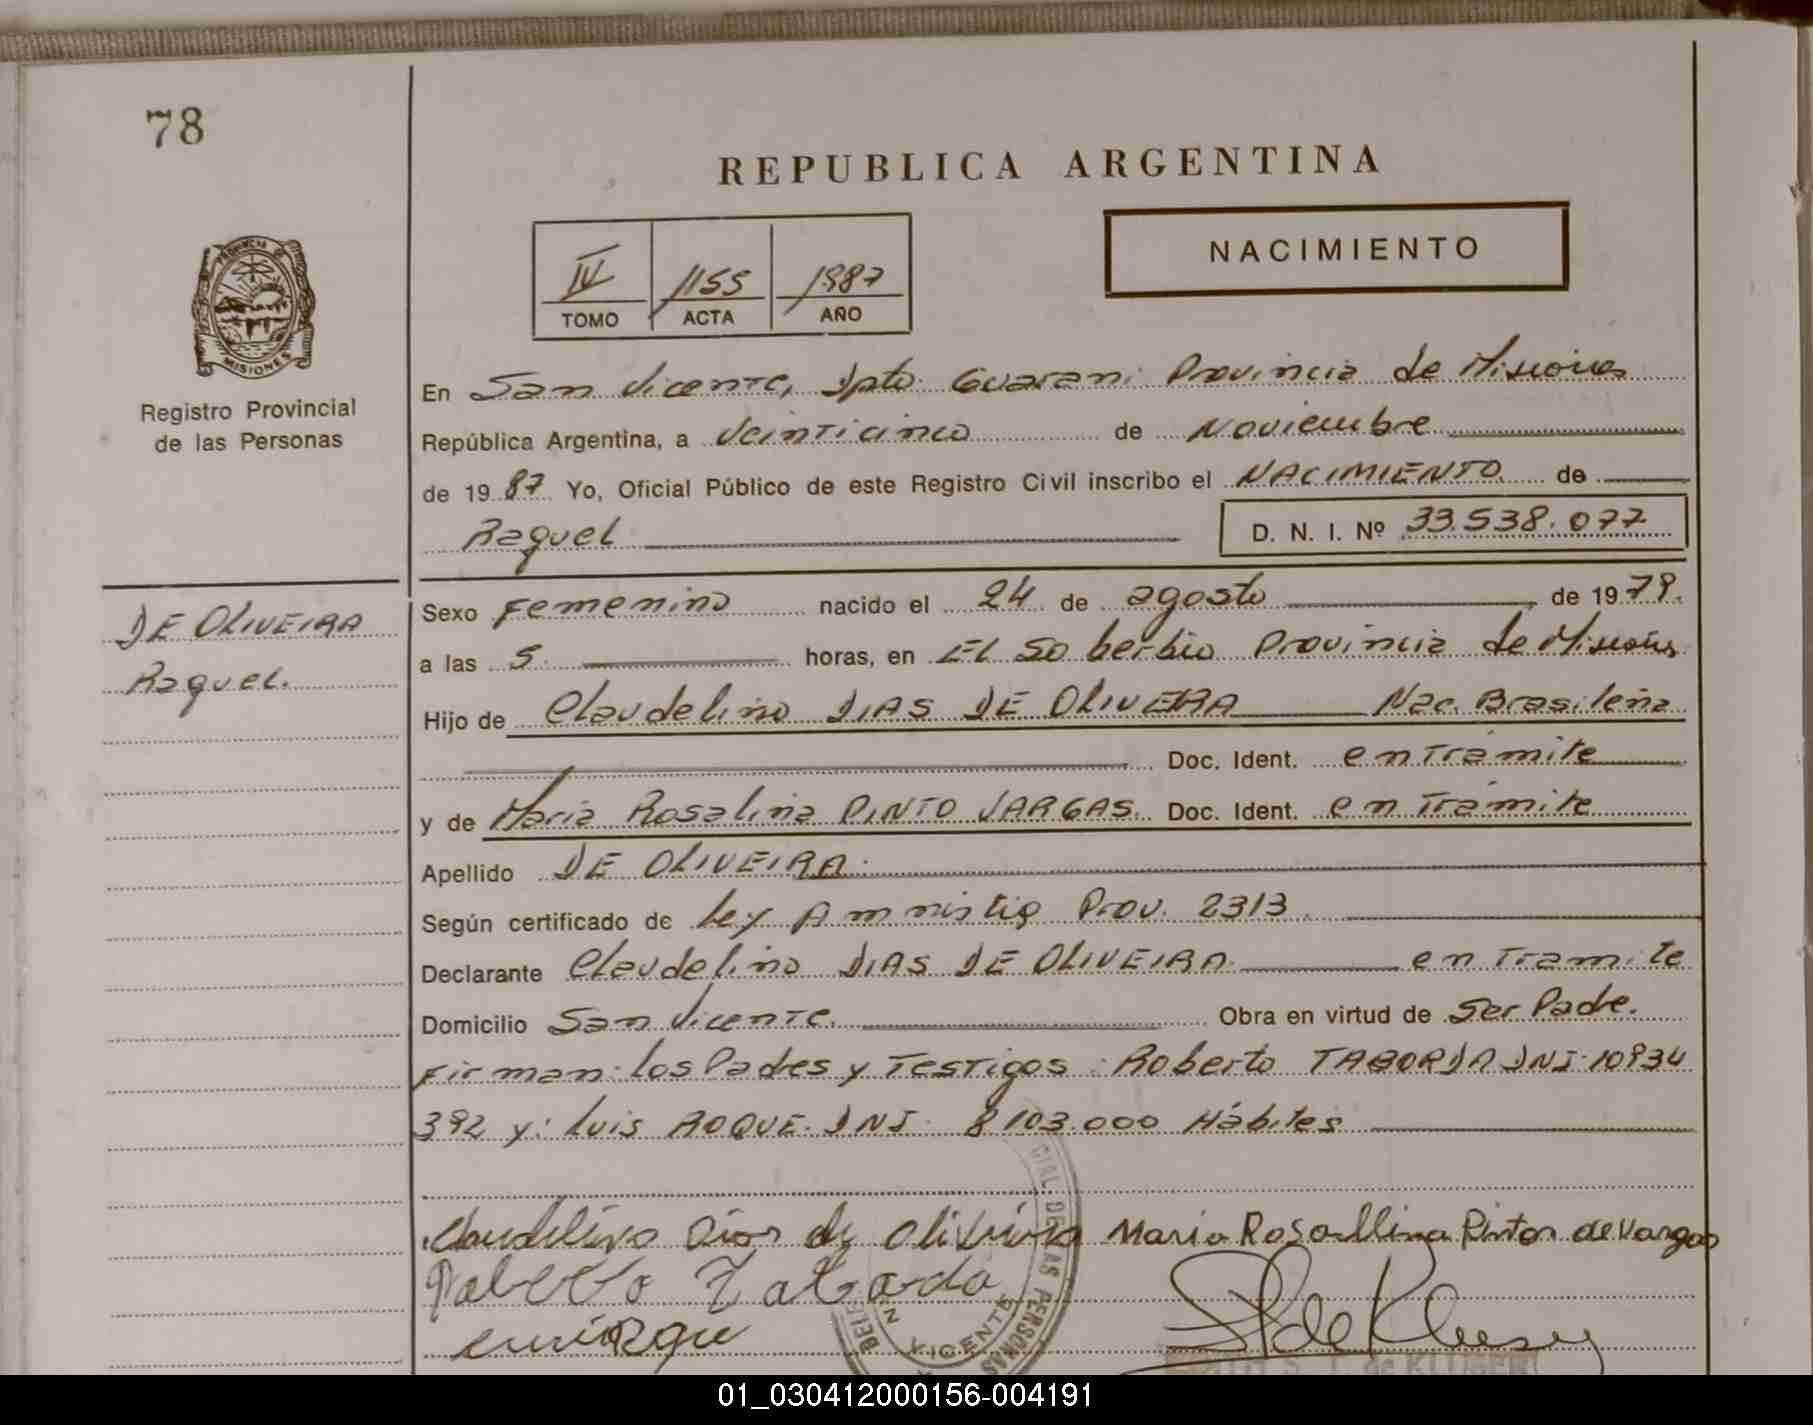 78
REPUBLICA ARGENTINA
NACIMIENTO
IV 1155 1987
TOMO ACTA AÑO
PROVINCIA DE
MISIONES
Registro Provincial
de las Personas
En San Vicente, Dpto. Guarani Provincia de Misiones
República Argentina, a Veinticinco de Noviembre
de 1987 Yo, Oficial Público de este Registro Civil inscribo el NACIMIENTO de
Raquel D. N. I. Nº 33.538.077
DE OLIVEIRA
Raquel.
Sexo Femenino nacido el 24 de agosto de 1979.
a las 5 horas, en EL Soberbio Provincia de Misiones
Hijo de Claudelino DIAS DE OLIVEIRA Nac. Brasileña
Doc. Ident. en Trámite
y de Maria Rosalina PINTO VARGAS. Doc. Ident. en Trámite
Apellido DE OLIVEIRA.
Según certificado de Ley Amnistia Prov. 2313
Declarante Claudelino DIAS DE OLIVEIRA en Tramite
Domicilio San Vicente. Obra en virtud de Ser Padre.
Firman: los Padres y Testigos: Roberto TABORDA DNI 10934
392 y: Luis ROQUE. DNI 8103.000 Hábiles
Claudelino Dias de Oliveira Maria Rosallina Pintos de Vargas
DE LAS PERSONAS
VICENTE
de KLUSENER
01_030412000156-004191